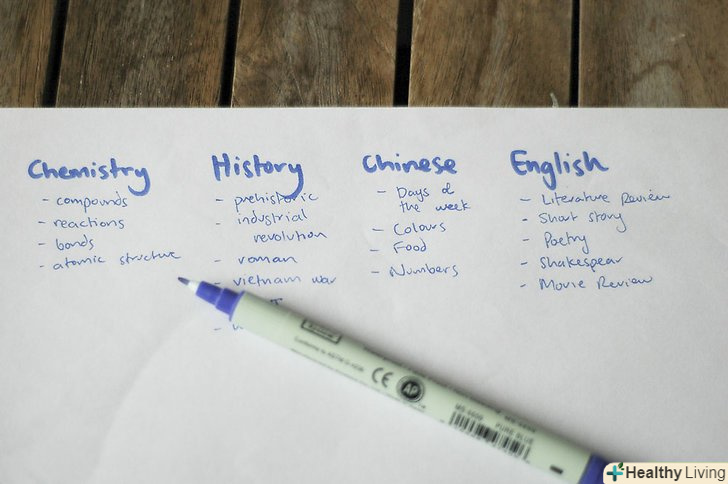 Chemistry
- compounds
- reactions
- bonds
- atomic structure
History
- prehistoric
- industrial
revolution
- roman
- vietnam war
Chinese
- Days of
the week
- Colours
- Food
- Numbers
English
- Literature Review
- Short story
- Poetry
- Shakespear
- Movie Review
CE
AP
MS-6600
PURE BLUE
Healthy Living